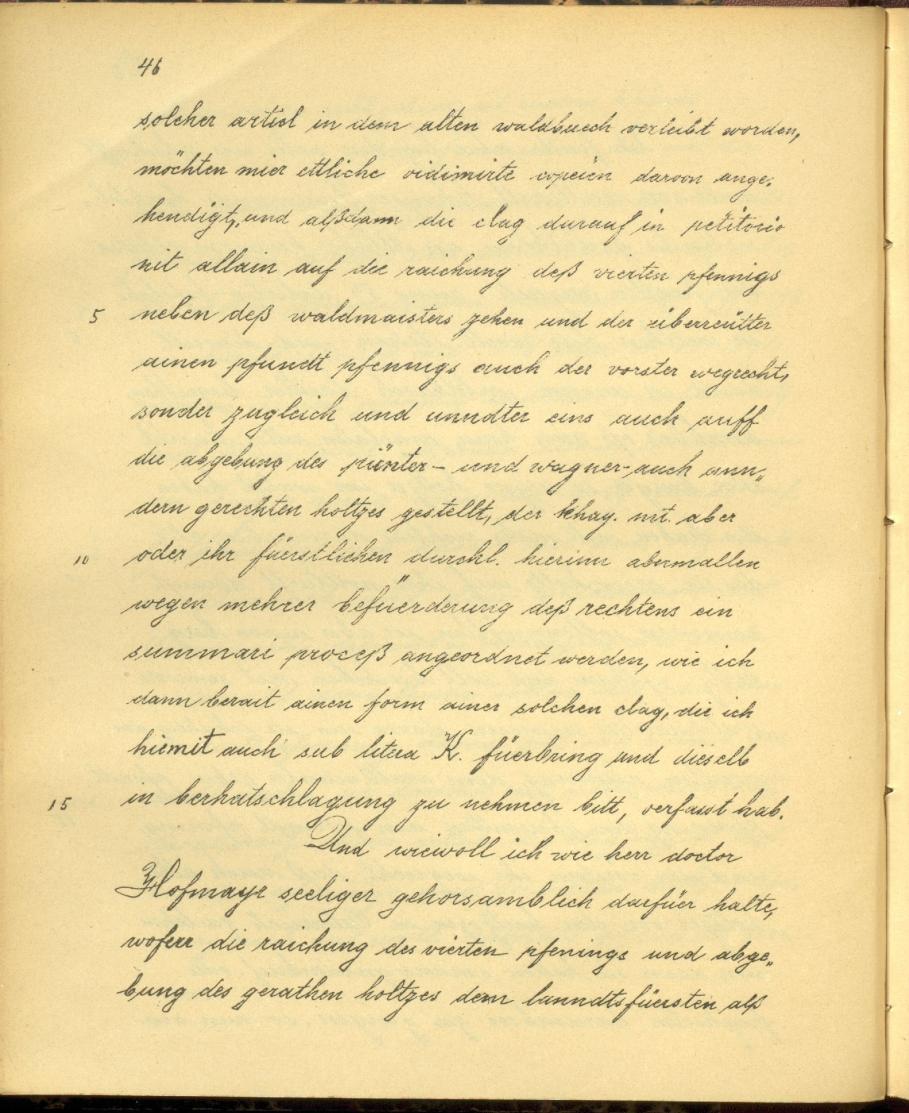 46
solcher articl in dem alten waldbuech verleibt worden,
möchten mier ettliche vidimirte copeien darvon ange,
hendigt, und alßdann die clag darauf in petitorio
nit allain auf die raichung deß vierten pfennigs
5 neben deß waldmaisters zehen und der überreütter
ainen pfundt pfennigs auch der vorster wegrecht,
sonder zugleich und unndter eins auch auff
die abgebung des pünter- und wagner- auch ann„
dern gerechten holtzes gestellt, der khay. mt. aber
10 oder ihr füerstlichen durchl. hierinn abermallen
wegen mehrer befüerderung deß rechtens ein
summari proceß angeordnet werden, wie ich
dann berait ainen form ainer solchen clag, die ich
hiemit auch sub litera K. füerbring und dieselb
15 in berhatschlagung zu nehmen bitt, verfasst hab.
Und wiewoll ich wie herr doctor
Hofmayr seeliger gehorsamblich darfüer halte,
woferr die raichung des vierten pfenings und abge„
bung des gerathen holtzes dem lanndtsfüersten alß